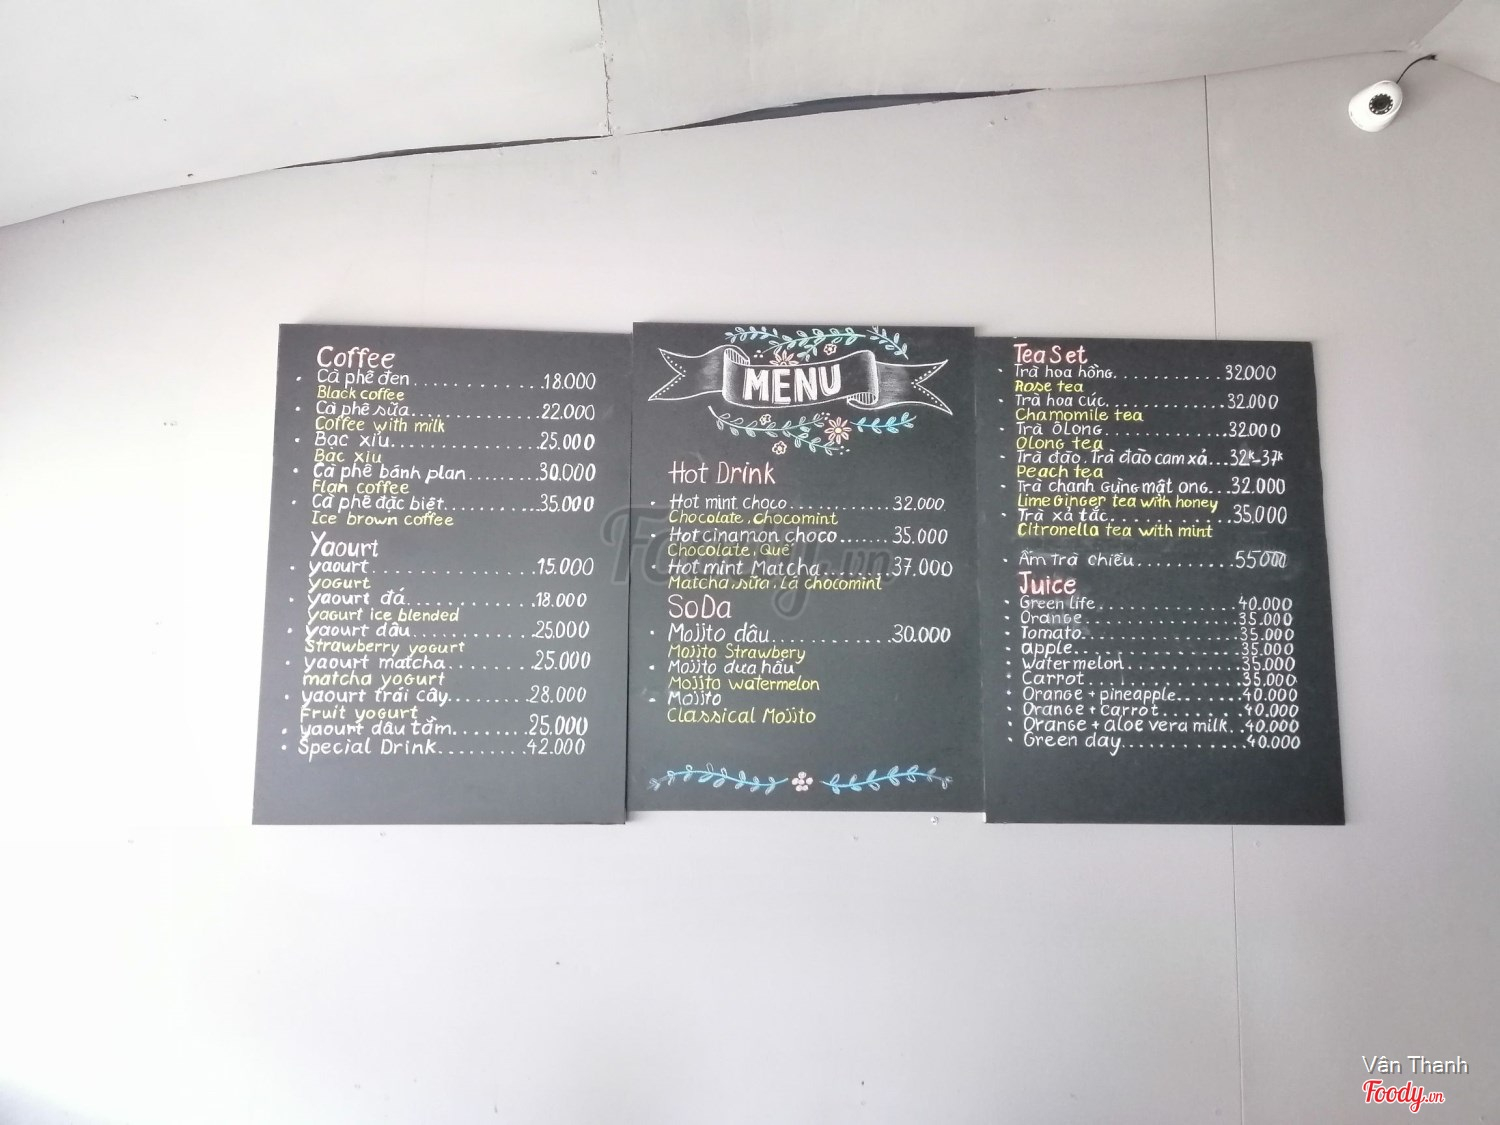 Coffee
• Cà phê đen.............18.000
Black coffee
• Cà phê sữa.............22.000
Coffee with milk
• Bạc xỉu...............25.000
Bạc xỉu
• Cà phê bánh plan.......30.000
Flan coffee
• Cà phê đặc biệt........35.000
Ice brown coffee
Yaourt
• yaourt.................15.000
yogurt
• yaourt đá.............18.000
yagurt ice blended
• yaourt dâu............25.000
Strawberry yogurt
• yaourt matcha.........25.000
matcha yogurt
• yaourt trái cây........28.000
Fruit yogurt
• yaourt dâu tằm........25.000
• Special Drink.........42.000
MENU
Hot Drink
• Hot mint choco..........32.000
Chocolate, chocomint
• Hot cinamon choco.......35.000
Chocolate, Quế
• Hot mint Matcha........37.000
Matcha, sữa, lá chocomint
SoDa
• Mojito dâu............30.000
Mojito Strawbery
• Mojito dưa hấu
Mojito watermelon
• Mojito
Classical Mojito
Tea Set
• Trà hoa hồng...........32.000
Rose tea
• Trà hoa cúc............32.000
Chamomile tea
• Trà ôlong.............32.000
Olong tea
• Trà đào, Trà đào cam xả...32k-37k
Peach tea
• Trà chanh Gừng mật ong...32.000
Lime Ginger tea with honey
• Trà xả tắc............35.000
Citronella tea with mint
• Ấm Trà chiều..........55.000
Juice
• Green life.............40.000
• Orange................35.000
• Tomato................35.000
• apple.................35.000
• Water melon...........35.000
• Carrot................35.000
• Orange + pineapple.......40.000
• Orange + carrot.........40.000
• Orange + aloe vera milk..40.000
• Green day............40.000
Foody.vn
Vân Thanh
Foody.vn